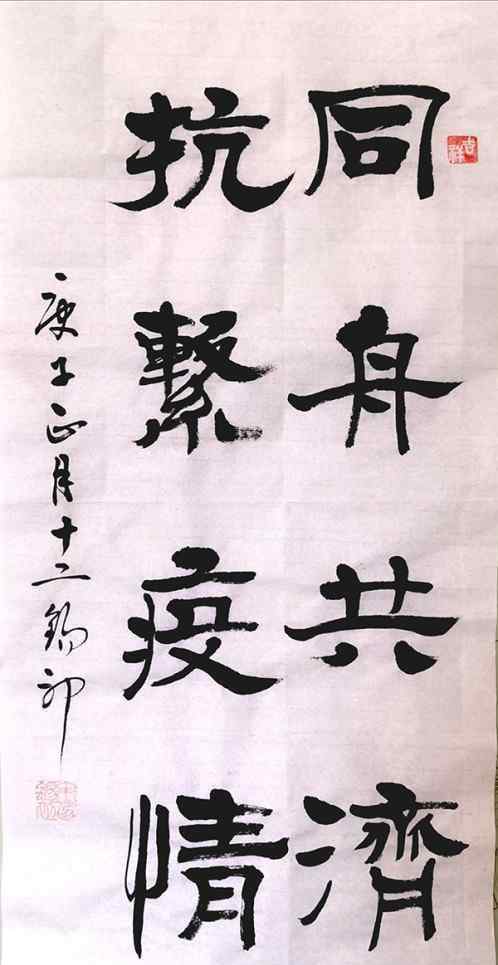 同舟共濟
抗繫疫情
庚子正月十二錫卯